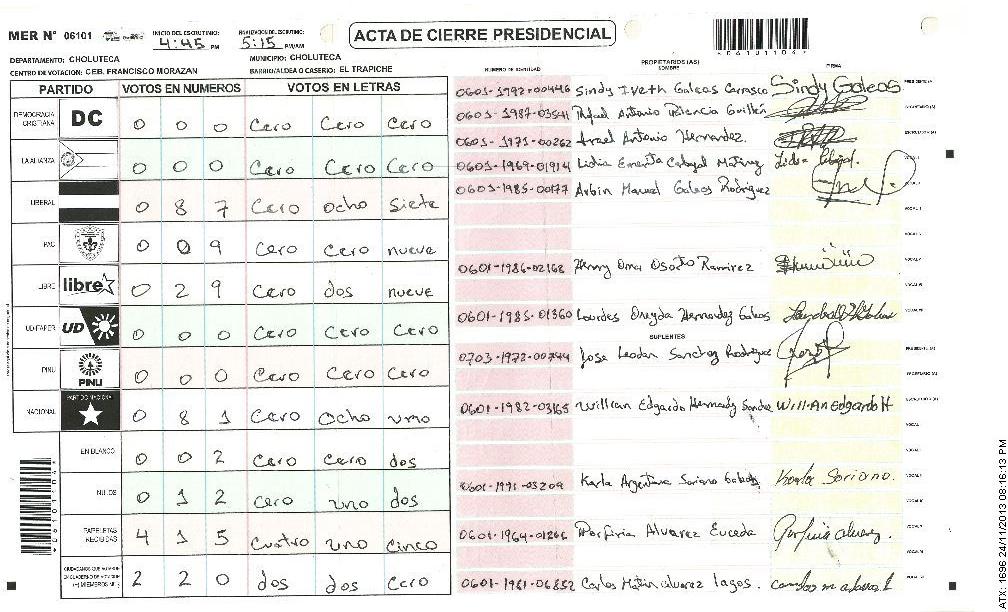 MER N° 06101
INICIO DEL ESCRUTINIO: 4:45 PM
FINALIZACION DEL ESCRUTINIO: 5:15 PM/AM
ACTA DE CIERRE PRESIDENCIAL
*06101104*
DEPARTAMENTO: CHOLUTECA
MUNICIPIO: CHOLUTECA
CENTRO DE VOTACION: CEB. FRANCISCO MORAZAN
BARRIO/ALDEA O CASERIO: EL TRAPICHE
PARTIDO VOTOS EN NUMEROS VOTOS EN LETRAS
DEMOCRACIA CRISTIANA DC 0 0 0 Cero Cero Cero
LA ALIANZA 0 0 0 Cero Cero Cero
LIBERAL 0 8 7 Cero Ocho Siete
PAC 0 0 9 Cero Cero nueve
LIBRE libre 0 2 9 Cero dos nueve
UD/FAPER UD 0 0 0 Cero Cero Cero
PINU PINU 0 0 0 Cero Cero Cero
NACIONAL PARTIDO NACIONAL 0 8 1 Cero Ocho uno
EN BLANCO 0 0 2 Cero Cero dos
NULOS 0 1 2 cero uno dos
PAPELETAS RECIBIDAS 4 1 5 Cuatro uno Cinco
2 2 0 dos dos Cero
NUMERO DE IDENTIDAD PROPIETARIOS (AS) NOMBRE FIRMA
0601-1992-00446 Sindy Iveth Galeas Carrasco Sindy Galeas PRESIDENTE/A
0601-1987-03541 Rafael Antonio Palencia Guillén SECRETARIO (A)
0601-1971-00262 Antonio Hernandez. ESCRUTADOR (A)
0601-1969-01914 Lidia
0601-1985-00177 Arbin Manuel Galeas Rodriguez
0601-1986-02168 Henry Ramirez
0601-1985-01360 Lourdes Hernandez Galeas
SUPLENTES
0703-1972-00744 Jose Sanchez Rodriguez PRESIDENTE (A)
SECRETARIO (A)
0601-1982-03165 Willian Edgardo Will.An Edgardo H ESCRUTADOR (A)
0601-1991-03209 Karla Argentina Soriano Karla Soriano.
0601-1964-01266 Porfiria Alvarez Euceda Porfiria alvarez.
0601-1981-06852 Carlos alvarez lagos.
ATX: 1696 24/11/2013 08:16:13 PM